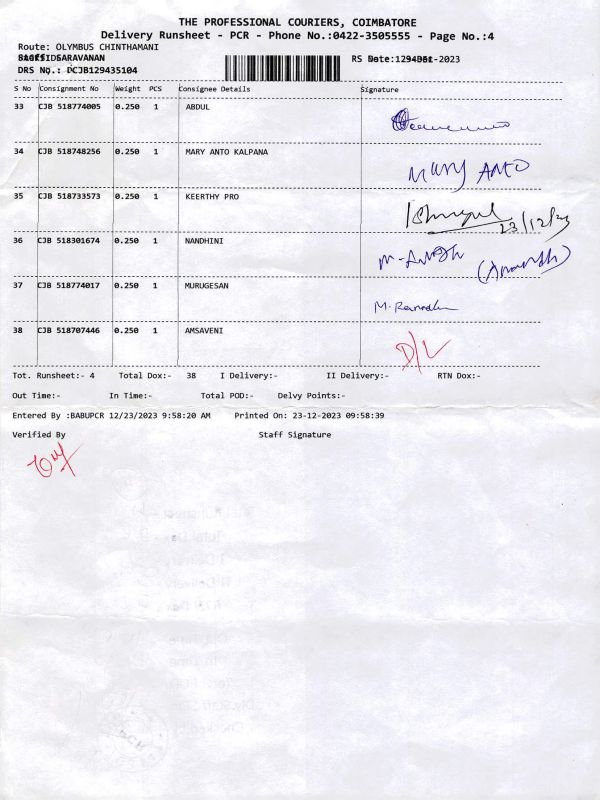 THE PROFESSIONAL COURIERS, COIMBATORE
Delivery Runsheet - PCR - Phone No.:0422-3505555 - Page No.:4
Route: OLYMBUS CHINTHAMANI
SARAVANAN
RS Date: -2023
DRS No.: DCJB129435104
S No Consignment No Weight PCS Consignee Details Signature
33 CJB 518774005 0.250 1 ABDUL
34 CJB 518748256 0.250 1 MARY ANTO KALPANA MARY ANTO
35 CJB 518733573 0.250 1 KEERTHY PRO 23/12/23
36 CJB 518301674 0.250 1 NANDHINI
37 CJB 518774017 0.250 1 MURUGESAN
38 CJB 518707446 0.250 1 AMSAVENI D/L
Tot. Runsheet:- 4 Total Dox:- 38 I Delivery:- II Delivery:- RTN Dox:-
Out Time:- In Time:- Total POD:- Delvy Points:-
Entered By :BABUPCR 12/23/2023 9:58:20 AM Printed On: 23-12-2023 09:58:39
Verified By Staff Signature